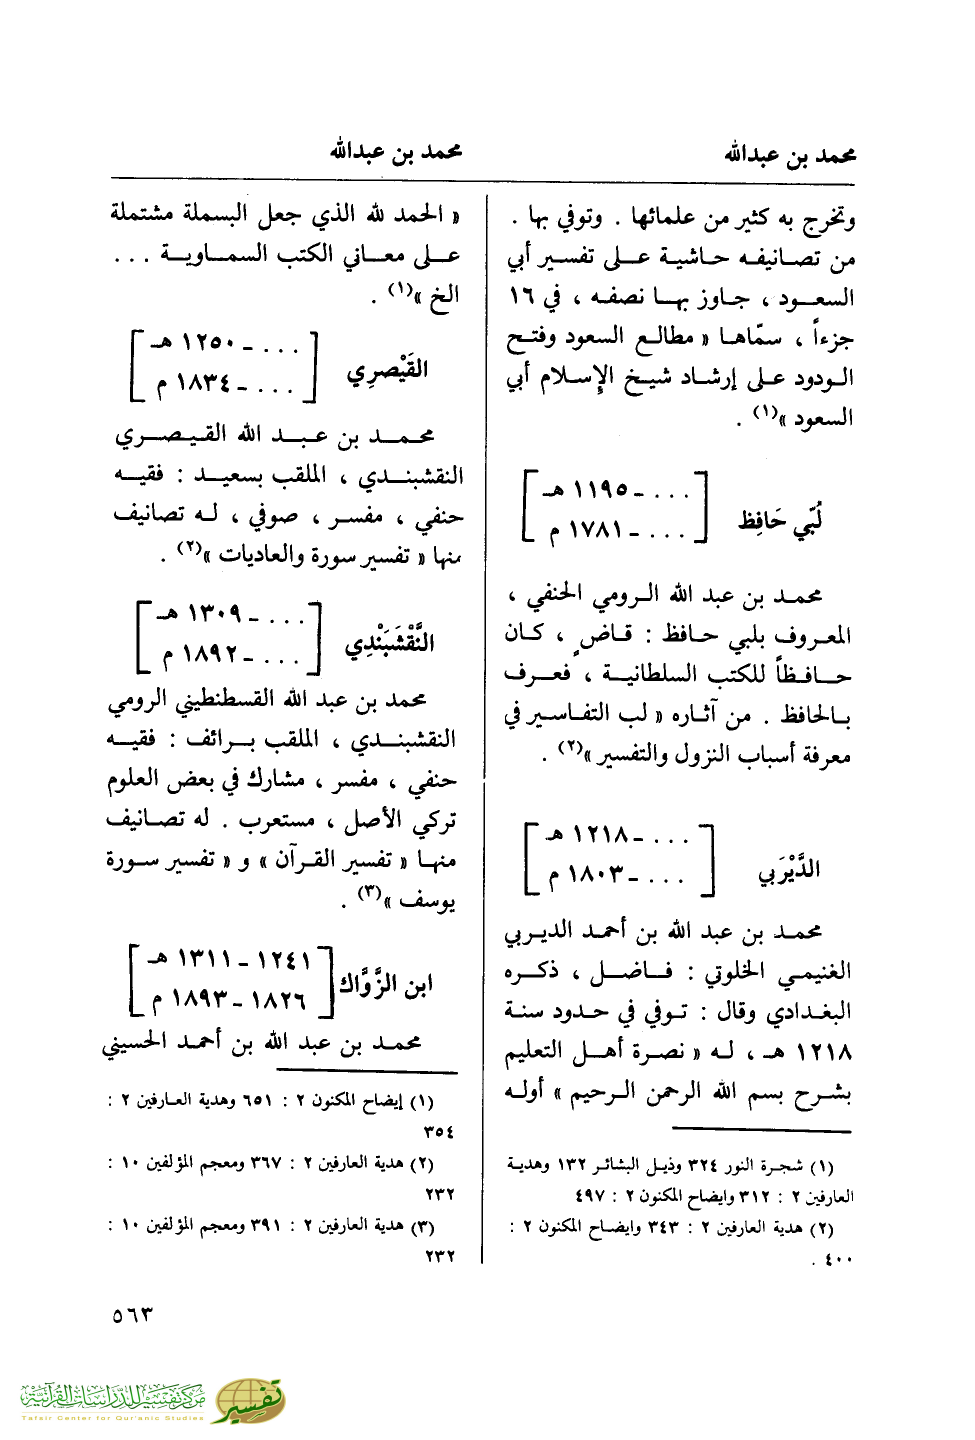 محمد بن عبدالله
محمد بن عبدالله
وتخرج به كثير من علمائها . وتوفي بها .
من تصانيفه حاشية على تفسير أبي
السعود ، جاوز بها نصفه ، في ١٦
جزءاً ، سمّاها « مطالع السعود وفتح
الودود على إرشاد شيخ الإسلام أبي
السعود »(١) .
لُبّي حَافِظ
[ . . . ـ ١١٩٥ هـ
. . . ـ ١٧٨١ م ]
محمد بن عبد الله الرومي الحنفي ،
المعروف بلبي حافظ : قاضٍ ، كان
حافظاً للكتب السلطانية ، فعرف
بالحافظ . من آثاره « لب التفاسير في
معرفة أسباب النزول والتفسير »(٢) .
الدَّيْرَبي
[ . . . ـ ١٢١٨ هـ
. . . ـ ١٨٠٣ م ]
محمد بن عبد الله بن أحمد الديربي
الغنيمي الخلوتي : فاضل ، ذكره
البغدادي وقال : توفي في حدود سنة
١٢١٨ هـ ، له « نصرة أهل التعليم
بشرح بسم الله الرحمن الرحيم » أوله
(١) شجرة النور ٣٢٤ وذيل البشائر ١٣٢ وهدية
العارفين ٢ : ٣١٢ وايضاح المكنون ٢ : ٤٩٧
(٢) هدية العارفين ٢ : ٣٤٣ وايضاح المكنون ٢ :
٤٠٠ .
« الحمد لله الذي جعل البسملة مشتملة
على معاني الكتب السماوية . . .
الخ »(١) .
القَيْصرِي
[ . . . ـ ١٢٥٠ هـ
. . . ـ ١٨٣٤ م ]
محمد بن عبد الله القيصري
النقشبندي ، الملقب بسعيد : فقيه
حنفي ، مفسر ، صوفي ، له تصانيف
منها « تفسير سورة والعاديات »(٢) .
النَّقْشَبَنْدِي
[ . . . ـ ١٣٠٩ هـ
. . . ـ ١٨٩٢ م ]
محمد بن عبد الله القسطنطيني الرومي
النقشبندي ، الملقب برائف : فقيه
حنفي ، مفسر ، مشارك في بعض العلوم
تركي الأصل ، مستعرب . له تصانيف
منها « تفسير القرآن » و « تفسير سورة
يوسف »(٣) .
ابن الزَّوَّاك
[ ١٢٤١ ـ ١٣١١ هـ
١٨٢٦ ـ ١٨٩٣ م ]
محمد بن عبد الله بن أحمد الحسيني
(١) إيضاح المكنون ٢ : ٦٥١ وهدية العارفين ٢ :
٣٥٤
(٢) هدية العارفين ٢ : ٣٦٧ ومعجم المؤلفين ١٠ :
٢٣٢
(٣) هدية العارفين ٢ : ٣٩١ ومعجم المؤلفين ١٠ :
٢٣٢
٥٦٣
مركز تفسير للدراسات القرآنية
Tafsir Center for Qur'anic Studies
تفسير